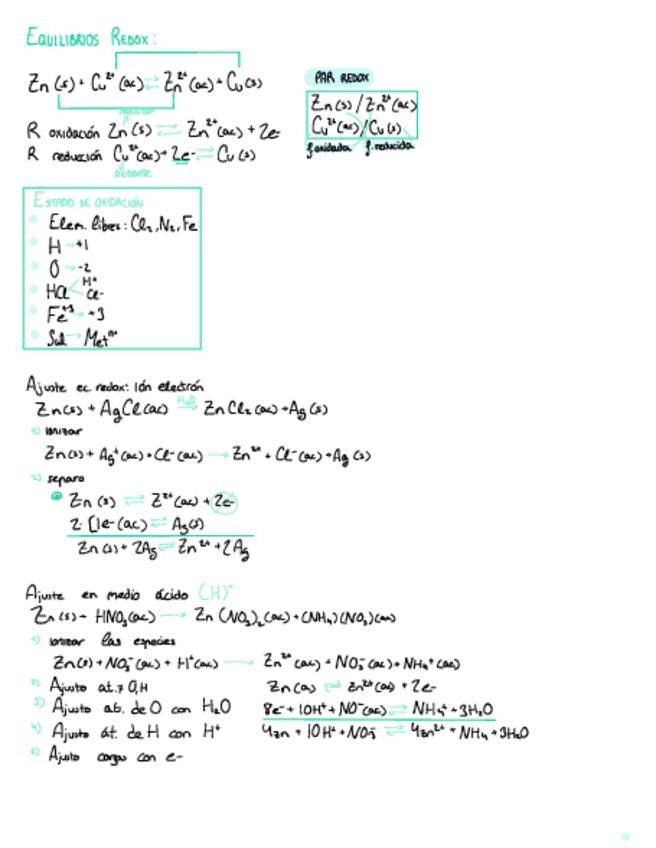 EQUILIBRIOS REDOX:
Zn(s) + Cu²⁺(ac) ⇌ Zn²⁺(ac) + Cu(s)
PAR REDOX
Zn(s)/Zn²⁺(ac)
Cu²⁺(ac)/Cu(s)
f. oxidada f. reducida
R oxidación Zn(s) ⇌ Zn²⁺(ac) + 2e-
R reducción Cu²⁺(ac) + 2e- ⇌ Cu(s)
OXIDANTE
ESTADO DE OXIDACIÓN
Elem. libres: Cl₂, N₂, Fe
H → +1
O → -2
HCl < H⁺ Cl-
Fe⁺³ → +3
Sal → Metⁿ⁺
Ajuste ec redox: Ión electrón
Zn(s) + AgCl(ac) H₂O ⇌ ZnCl₂(ac) + Ag(s)
1) Ionizar
Zn(s) + Ag⁺(ac) + Cl⁻(ac) → Zn²⁺ + Cl⁻(ac) + Ag(s)
2) separo
Zn(s) ⇌ Z²⁺(ac) + 2e-
2·[1e-(ac) ⇌ Ag(s)
Zn(s) + 2Ag ⇌ Zn²⁺ + 2Ag
Ajuste en medio ácido (H)⁺
Zn(s) + HNO₃(ac) → Zn(NO₃)₂(ac) + (NH₄)(NO₃)(ac)
1) Ionizar las especies
Zn(s) + NO₃⁻(ac) + H⁺(ac) → Zn²⁺(ac) + NO₃⁻(ac) + NH₄⁺(ac)
2) Ajusto at. ≠ O,H Zn(s) ⇌ Zn²⁺(ac) + 2e-
3) Ajusto at. de O con H₂O 8e- + 10H⁺ + NO⁻(ac) ⇌ NH₄⁺ + 3H₂O
4) Ajusto át. de H con H⁺ 4Zn + 10H⁺ + NO₃⁻ ⇌ 4Zn²⁺ + NH₄ + 3H₂O
5) Ajusto cargas con e-